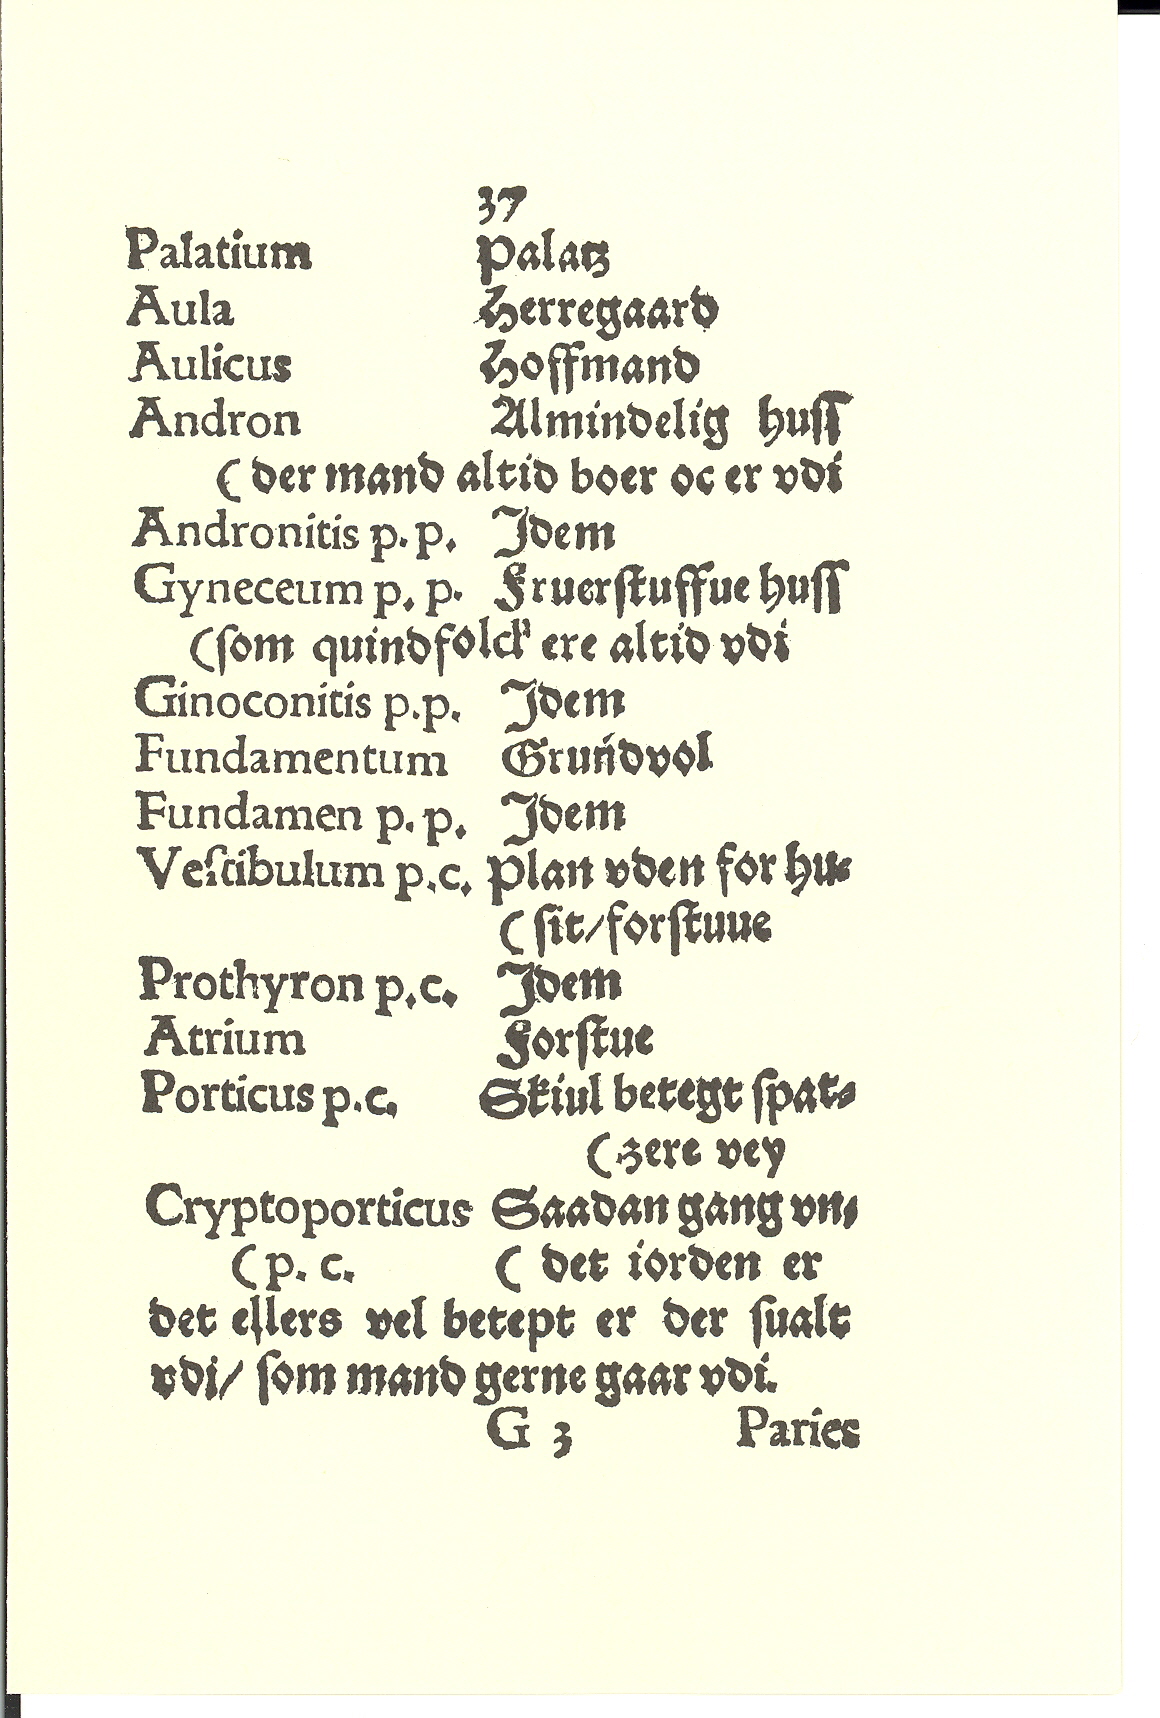 37
Palatium Palatz
Aula Herregaard
Aulicus Hoffmand
Andron Almindelig huſſ
( der mand altid boer oc er vdi
Andronitis p. p. Idem
Gyneceum p. p. Fruerſtuffue huſſ
(ſom quindfolck ere altid vdi
Ginoconitis p.p. Idem
Fundamentum Grundvol
Fundamen p. p. Idem
Veſtibulum p.c. Plan vden for hu⸗
( ſit/forſtuue
Prothyron p.c. Idem
Atrium Forſtue
Porticus p.c. Skiul betegt ſpat⸗
(zere vey
Cryptoporticus Saadan gang vn⸗
( p. c. ( det iorden er
det ellers vel betept er der ſualt
vdi/ ſom mand gerne gaar vdi.
G 3 Paries